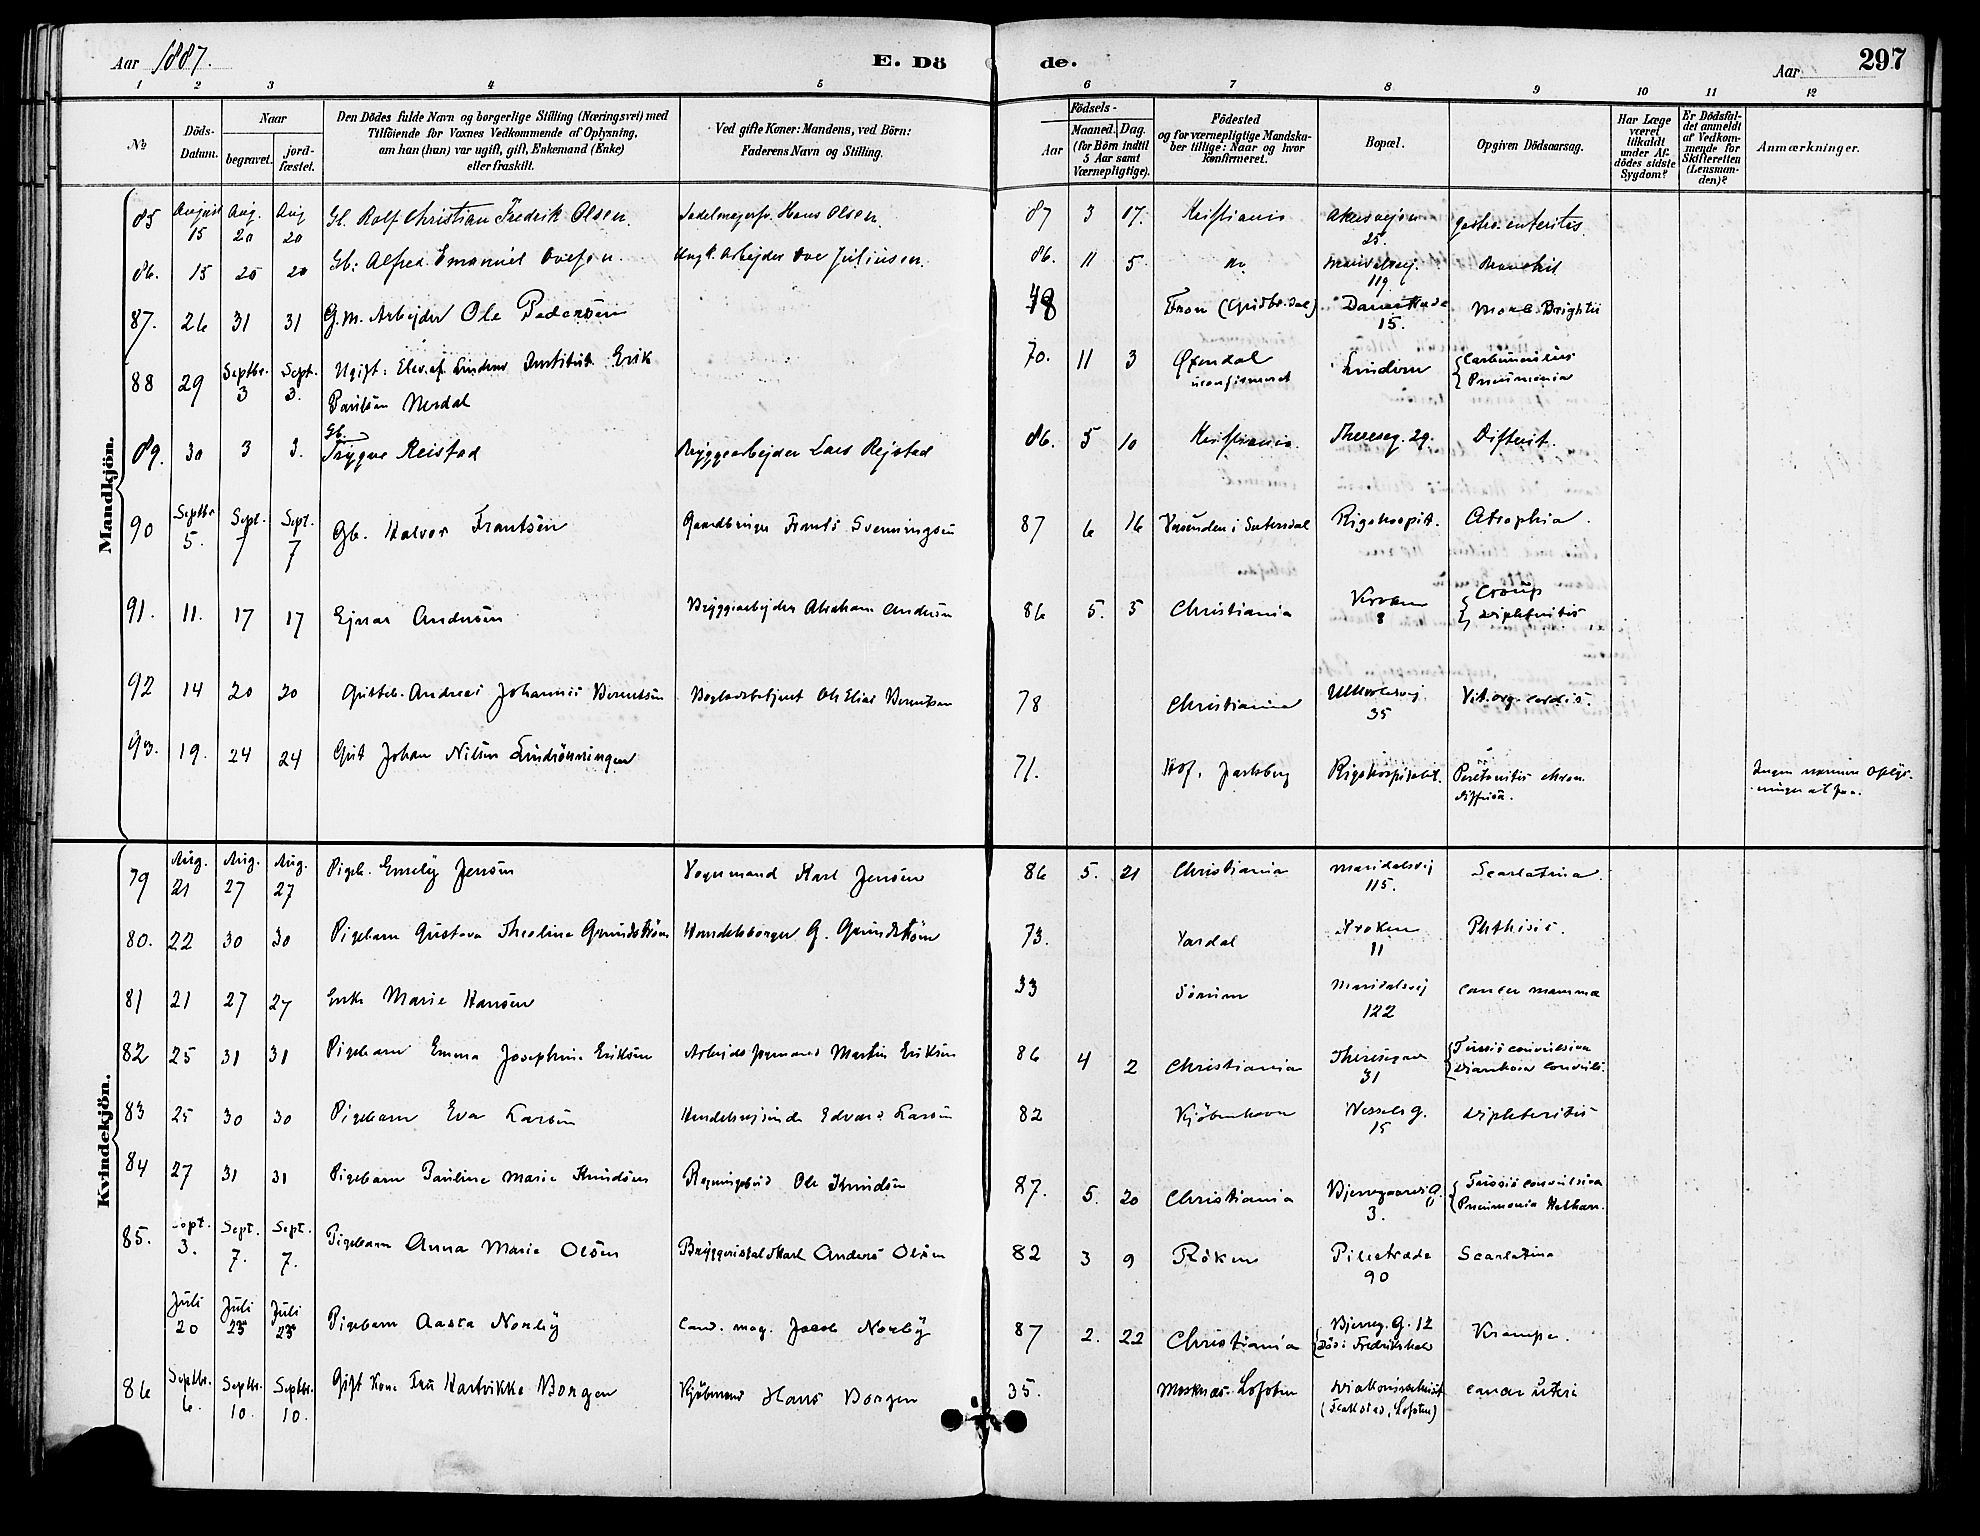 Aar 1887.
E. Dö
de.
Aar
297
1 2 3 4 5 6 7 8 9 10 11 12
No
Döds-Datum.
Naar
begravet.
jord-fæstet.
Den Dödes fulde Navn og borgerlige Stilling (Næringsvei) med
Tilföiende for Voxnes Vedkommende af Oplysning,
om han (hun) var ugift, gift, Enkemand (Enke)
eller fraskilt.
Ved gifte Koner: Mandens, ved Börn:
Faderens Navn og Stilling.
Födsels-
Aar
Maaned. Dag.
(for Börn indtil
5 Aar samt
Værnepligtige).
Födested
og for værnepligtige Mandska-
ber tillige: Naar og hvor
konfirmeret.
Bopæl.
Opgiven Dödsaarsag.
Har Læge
været
tilkaldt
under Af-
dödes sidste
Sygdom?
Er Dödsfal-
det anmeldt
af Vedkom-
mende for
Skifteretten
(Lensman-
den)?
Anmærkninger.
Mandkjön.
85 August 15 Aug. 20 Aug 20 Gb. Rolf Christian Fredrik Olsen. Sadelmagersv. Hans Olsen. 87 3 17. Kristiania Akersvejen 25. Gastro.enteritis.
86. 15 20 20 Gb: Alfred Emanuel Ovesen. Ung k. Arbejder Ove Juliussen. 86. 11 5. do Maridalsvej. 119 Bronchit
87. 26 31 31 G.M. Arbejder Ole Pedersen 48 Fron (Gudbr.dal) 15. Morb. Brightii
88 29 Septbr. 3 Sept. 3. Ugift: Elev af Lindern Institut Erik
Paulsen Nerdal 70. 11 3 Øxendal
uconfirmeret Lindern Carbunculus
Pneumonia
89. 30 3 3. Gb.
Trygve Reistad Bryggearbejder Lars Rejstad 86. 5 10 Kristiania. Thereseg. 29. Difterit.
90 Septbr 5. Sept. 7 Sept. 7 Gb. Halvor Frantsen Gaardbruger Frants Svenningsen 87 6 16 i Sætersdal Rigshospit. Atrophia.
91. 11. 17 17 Ejnar Andersen Bryggeriarbejder Abraham Andersen 86 5. 5 Christiania Kroken 8 Croup
Diphteritis
92 14 20 20 Gutteb. Andreas Johannes Berentsen Ole Elias Berentsen 78 Christiania Ullevoldsvej 35 Vit. org. cordis.
93. 19. 24 24 Gut Johan Nilsen 71. Hof. Jarlsberg Rigshospitalet. Peritonitis chron.
diffusa. Ingen nærmere Oplys-
ninger at faa.
Kvindekjön.
79 Aug. 21 Aug. 27 Aug. 27 Pigeb. Emely Jensen Vognmand Karl Jensen 86 5. 21 Christiania Maridalsvej 115. Scarlatina.
80. 22 30 30 Pigebarn Gustava Theoline Grundstrøm Handelsborger G. Grundstrøm 73. Vardal Kroken 11 Phthisis.
81 21 27 27 Enke Marie Hansen 33 Sörum Maridalsvej 122 Cancer mamma
82 25 31 31 Pigebarn Emma Josephine Eriksen Martin Eriksen 86 4 2 Christiania Theresegade 31 Tussis convulsiva
Diarrhoea convuls.
83 25 30 30 Pigebarn Eva Larsen Handelsrejsende Edvard Larsen 82 Kjöbenhavn Wessels g. 15 Diphteritis
84 27 31 31 Pigebarn Pauline Marie Knudsen Regningsbud Ole Knudsen 87. 5. 20 Christiania Bjerregaardsg. 3. Tussis convulsiva
Pneumonia Katharr.
85. Sept. 3. Sept. 7. Sept. 7. Pigebarn Anna Marie Olsen Bryggeristaldkarl Anders Olsen 82 3 9 Röken Pilestræde 90 Scarlatina
Juli 20 Juli 25 Juli 25 Pigebarn Aasta Norby Cand. mag. Jacob Norby 87 2. 22 Christiania Bjerreg. G. 12
Död i Fredrikshald Krampe.
86 Septbr. 6. Septbr. 10. Septbr. 10. Gift Kone Fru Hartvikke Borgen Kjöbmand Hans Borgen 35. Moskenæs Lofoten Diakonissehuset
(, Lofoten) Cancer uteri